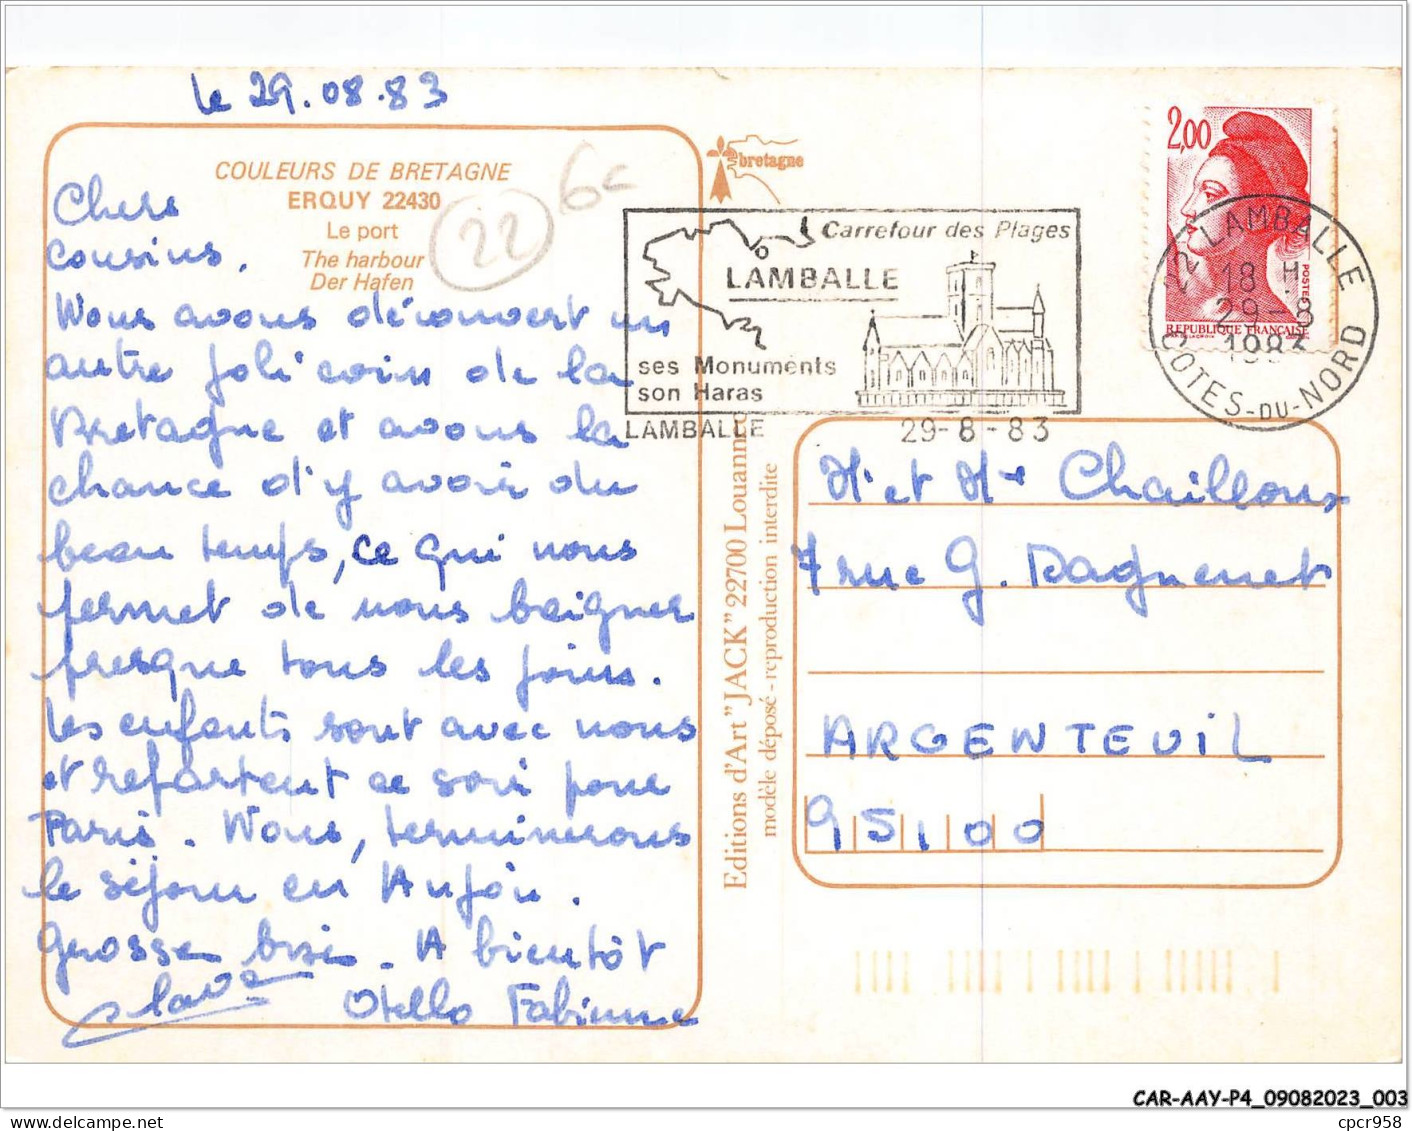 le 29.08.83
COULEURS DE BRETAGNE
ERQUY 22430
Le port
The harbour
Der Hafen
22
6€
Chers
cousins,
Nous avons découvert un
autre joli coin de la
Bretagne et avons la
chance d'y avoir du
beau temps, ce qui nous
permet de nous baigner
presque tous les jours.
Les enfants sont avec nous
et repartent ce soir pour
Paris. Nous, terminerons
le séjour en Anjou.
Grosses bises. A bientôt
Otello Fabienne
bretagne
Carrefour des Plages
LAMBALLE
ses Monuments
son Haras
LAMBALLE
29-8-83
2,00
POSTES
REPUBLIQUE FRANÇAISE
22 LAMBALLE
18 H
29-8
1983
COTES-DU-NORD
Editions d'Art "JACK" 22700 Louannec
modèle déposé - reproduction interdite
Mr et Me Chailloux
7 rue G. Dagnenet
ARGENTEUIL
95100
CAR-AAY-P4_09082023_003
delcampe.net
cpcr958